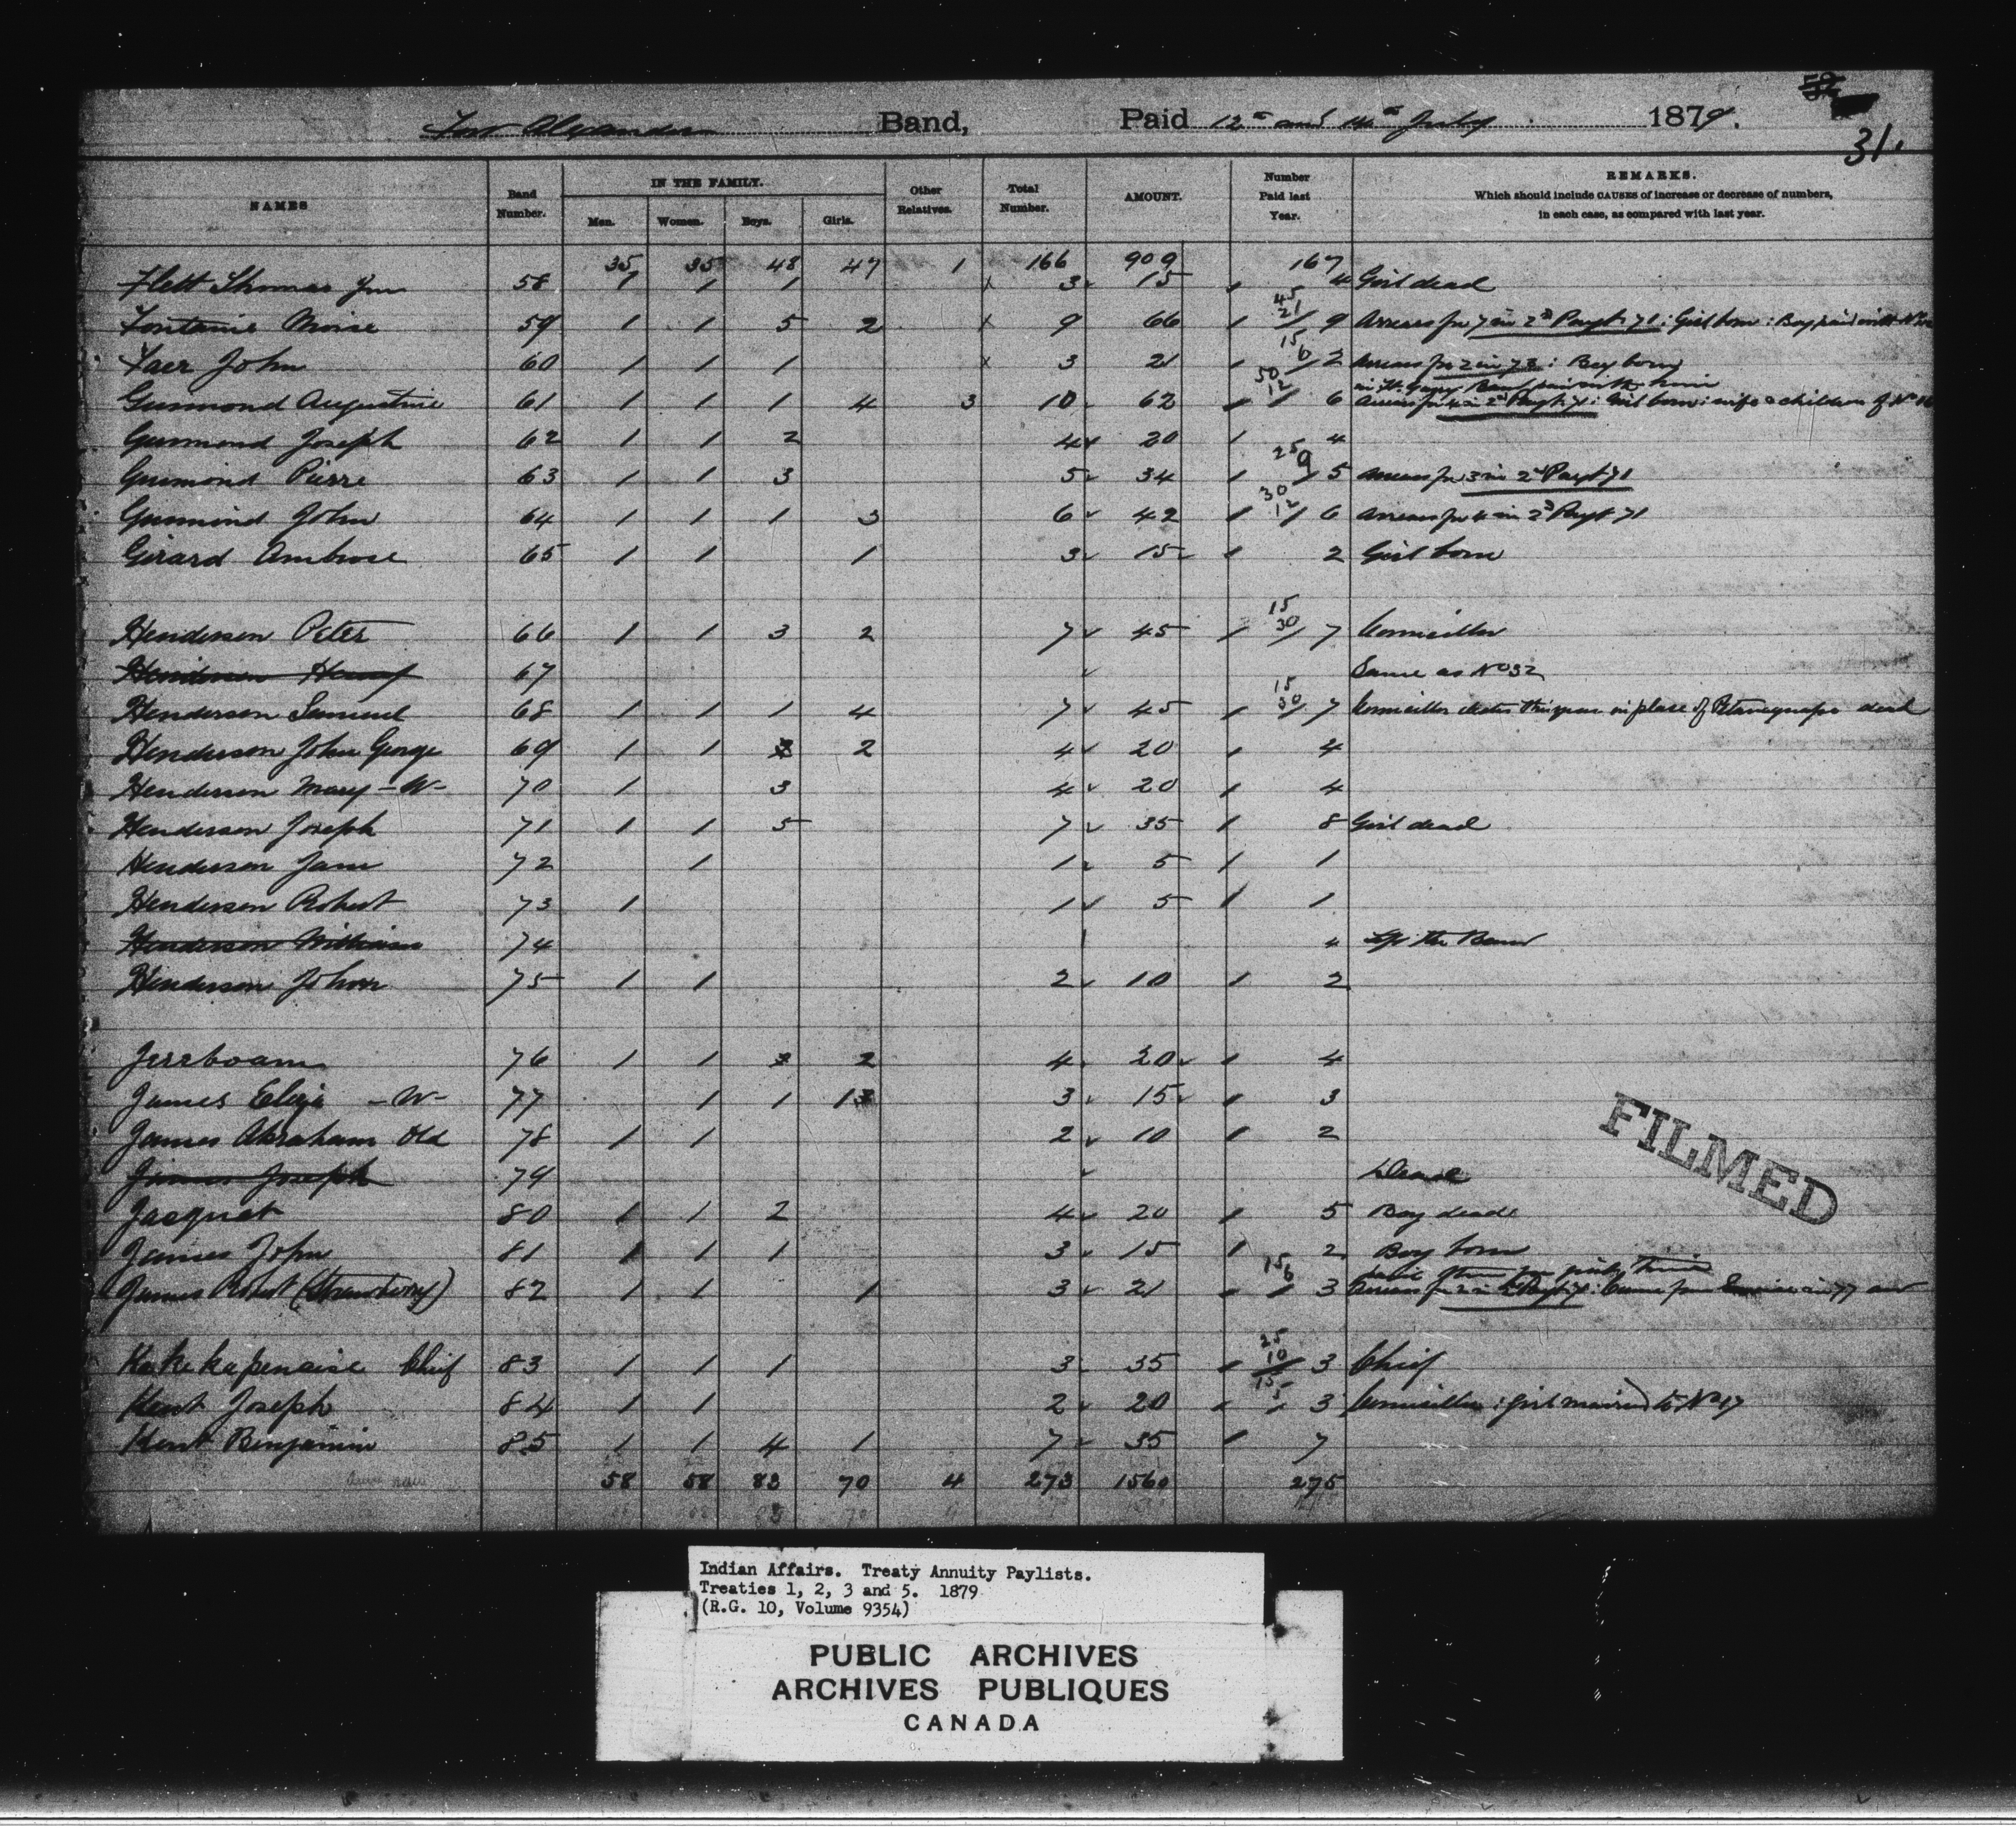 Fort Alexander Band, Paid 12th and 14th July 1879.
31.
NAMES Band Number. IN THE FAMILY. Men. Women. Boys. Girls. Other Relatives. Total Number. AMOUNT. Number Paid last Year. REMARKS. Which should include CAUSES of increase or decrease of numbers, in each case, as compared with last year.
35 35 48 47 1 166 909 167
Flett Thomas Jnr 58 1 1 1 x 3 15 1 4 Girl dead
Fontaine Moise 59 1 1 5 2 x 9 66 1 45 21 / 9 Arrears for 7 in 2d Payt 71 : Girl born : Boy paid with No
John 60 1 1 1 x 3 21 1 15 6 / 2 Arrears for 2 in 73 : Boy born
Guimond Augustine 61 1 1 1 4 3 10 62 1 50 12 / 6 Arrears for 4 in 2d Payt 71 : Girl born : wife & children of No
Guimond Joseph 62 1 1 2 4 20 1 4
Guimond Pierre 63 1 1 3 5 34 1 25 9 / 5 Arrears for 3 in 2d Payt 71
Guimond John 64 1 1 1 3 6 42 1 30 12 / 6 Arrears for 4 in 2d Payt 71
Girard Ambrose 65 1 1 1 3 15 1 2 Girl born
Henderson Peter 66 1 1 3 2 7 45 1 15 30 / 7 Councillor
Henderson Henry 67 Same as No 32
Henderson Samuel 68 1 1 1 4 7 45 1 15 30 / 7 Councillor elected this year in place of dead
Henderson John George 69 1 1 2 4 20 1 4
Henderson Mary - W - 70 1 3 4 20 1 4
Henderson Joseph 71 1 1 5 7 35 1 8 Girl dead
Henderson Jane 72 1 1 5 1 1
Henderson Robert 73 1 1 5 1 1
Henderson William 74 4 Left the Band
Henderson John 75 1 1 2 10 1 2
Jereboam 76 1 1 2 4 20 1 4
James Eliza - W - 77 1 1 1 3 15 1 3
James Abraham Old 78 1 1 2 10 1 2
James Joseph 79 Dead
Jacquet 80 1 1 2 4 20 1 5 Boy dead
James John 81 1 1 1 3 15 1 2 Boy born
James Robert (Strawberry) 82 1 1 1 3 21 1 15 6 / 3 Arrears for 2 in 2d Payt 71 : Came from in 77 and
Kakekapenaise Chief 83 1 1 1 3 35 1 25 10 / 3 Chief
Kent Joseph 84 1 1 2 20 1 15 5 / 3 Councillor : Girl married to No 17
Kent Benjamin 85 1 1 4 1 7 35 1 7
58 58 83 70 4 273 1560 275
FILMED
Indian Affairs. Treaty Annuity Paylists.
Treaties 1, 2, 3 and 5. 1879
(R.G. 10, Volume 9354)
PUBLIC ARCHIVES
ARCHIVES PUBLIQUES
CANADA